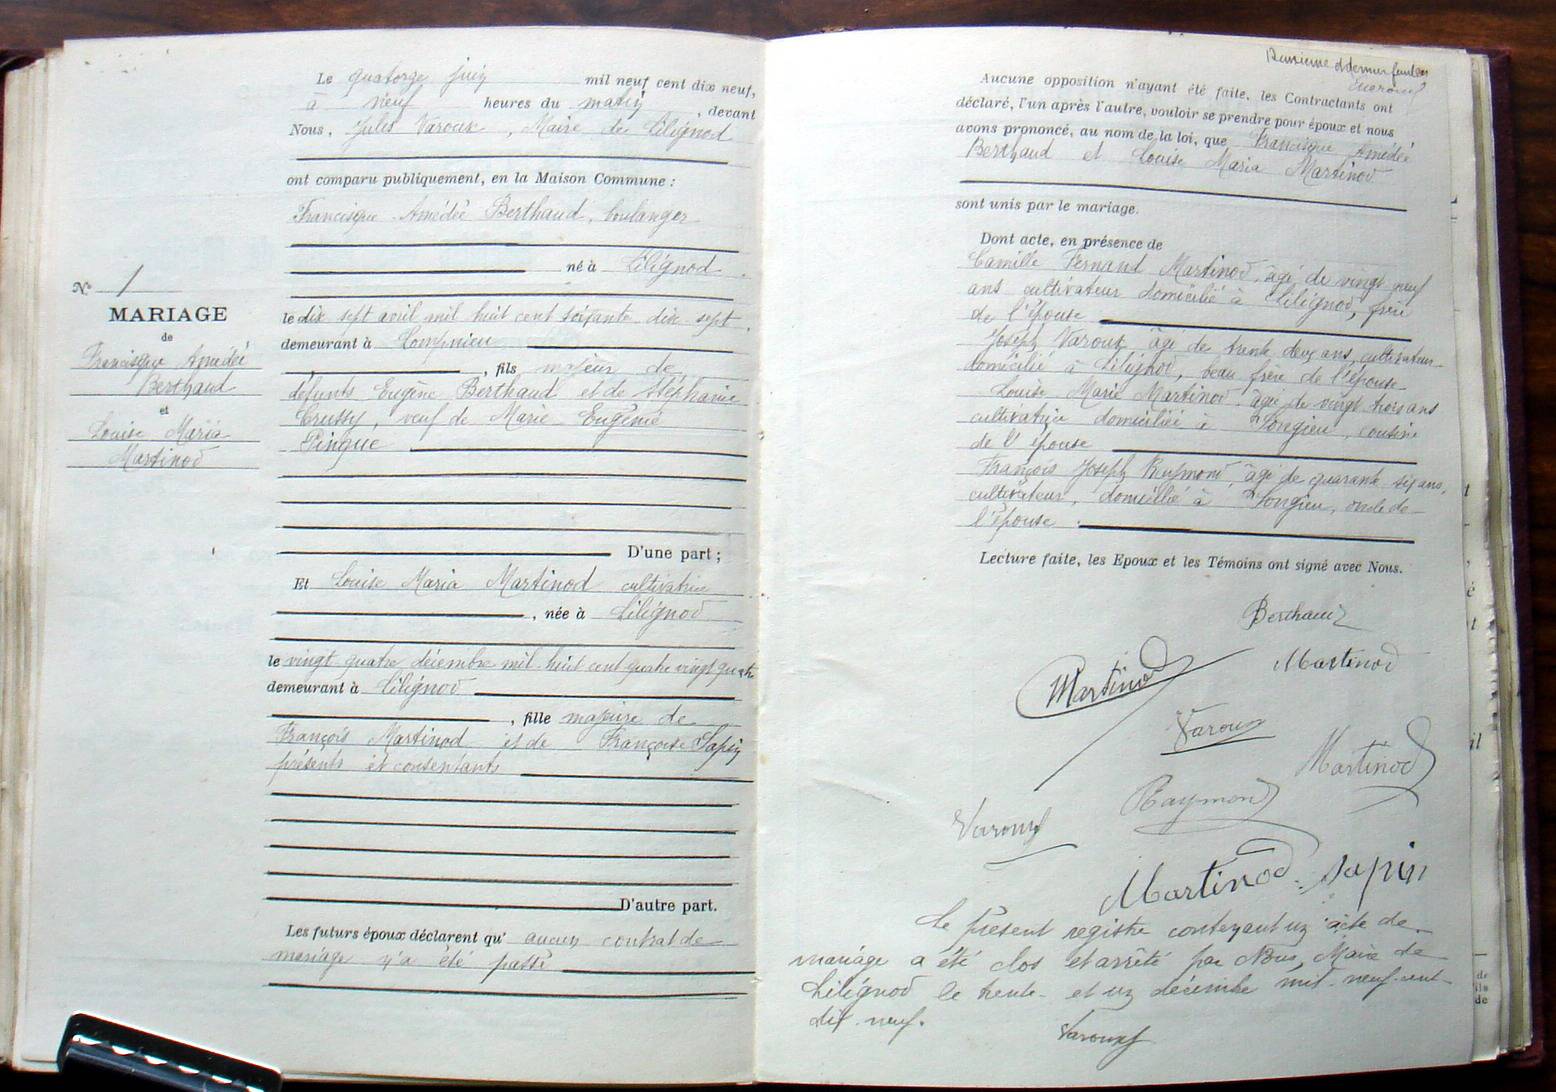 Nº 1
MARIAGE
de
Francisque Amédée
Berthaud
et
Louise Maria
Martinod
Le quatorze juin mil neuf cent dix neuf,
à neuf heures du matin, devant
Nous, Jules Varoux, Maire de Lilignod
ont comparu publiquement, en la Maison Commune :
Francisque Amédée Berthaud, boulanger
né à Lilignod
le dix sept avril mil huit cent soixante dix sept,
demeurant à Lompnieu
, fils majeur de
défunts Eugène Berthaud et de Stéphanie
Crussy, veuf de Marie Eugénie
Pingue
D'une part ;
Et Louise Maria Martinod cultivatrice
, née à Lilignod
le vingt quatre décembre mil huit cent quatre vingt quatre
demeurant à Lilignod
, fille majeure de
François Martinod et de Françoise Sapin
présents et consentants
D'autre part.
Les futurs époux déclarent qu' aucun contrat de
mariage n'a été passé
et dernier feuillet
Aucune opposition n'ayant été faite, les Contractants ont
déclaré, l'un après l'autre, vouloir se prendre pour époux et nous
avons prononcé, au nom de la loi, que Francisque Amédée
Berthaud et Louise Maria Martinod
sont unis par le mariage.
Dont acte, en présence de
Camille Fernand Martinod, âgé de vingt neuf
ans cultivateur domicilié à Lilignod, frère
de l'épouse
Joseph Varoux âgé de trente deux ans, cultivateur
domicilié à Lilignod, beau frère de l'épouse
Louise Marie Martinod, âgée de vingt trois ans
cultivatrice domiciliée à Songieu, cousine
de l'épouse
François Joseph Raymond, âgé de quarante six ans,
cultivateur, domicilié à Songieu, oncle de
l'épouse.
Lecture faite, les Epoux et les Témoins ont signé avec Nous.
Berthaud
Martinod
Martinod
Varoux
Martinod
Raymond
Varoux
Martinod Sapin
Le présent registre contenant un acte de
mariage a été clos et arrêté par Nous, Maire de
Lilignod le trente et un décembre mil neuf cent
dix neuf.
Varoux